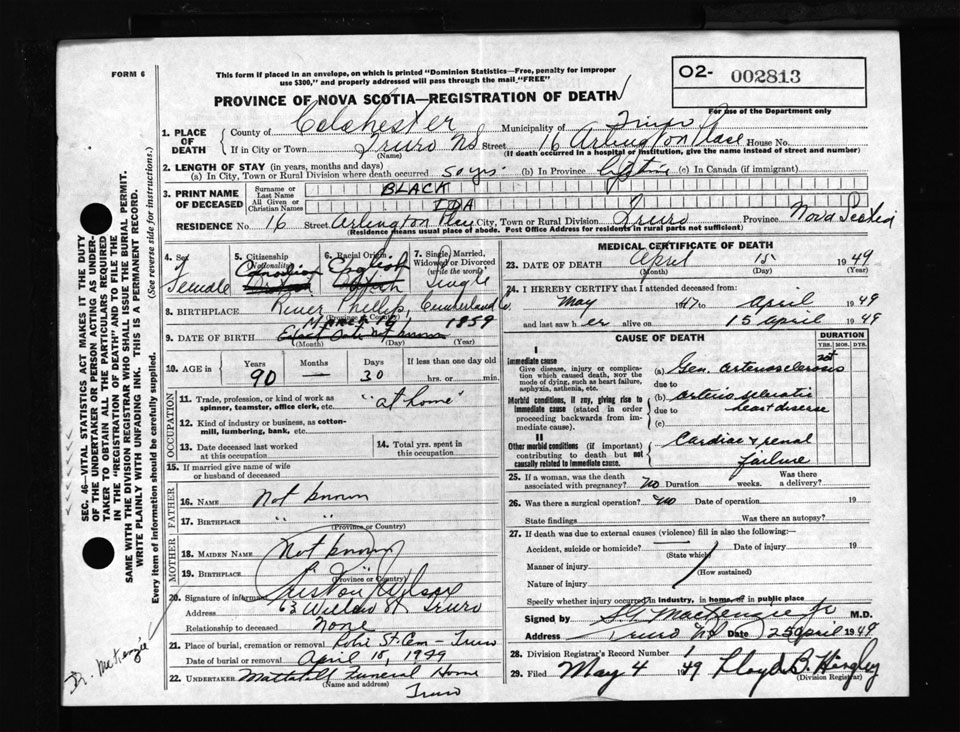 FORM 6
This form if placed in an envelope, on which is printed "Dominion Statistics—Free, penalty for improper
use $300," and properly addressed will pass through the mail "FREE"
O2- 002813
For use of the Department only
PROVINCE OF NOVA SCOTIA—REGISTRATION OF DEATH
1. PLACE OF DEATH
County of Colchester Municipality of Truro
If in City or Town Truro NS Street 16 Arlington Place House No.
(Name) (If death occurred in a hospital or institution, give the name instead of street and number)
2. LENGTH OF STAY (in years, months and days)
(a) In City, Town or Rural Division where death occurred 50 yrs. (b) In Province lifetime (c) In Canada (if immigrant)
3. PRINT NAME OF DECEASED
Surname or Last Name BLACK
All Given or Christian Names IDA
RESIDENCE No. 16 Arlington Place City, Town or Rural Division Truro Province Nova Scotia
(Residence means usual place of abode. Post Office Address for residents in rural parts not sufficient)
4. Sex Female
5. Citizenship (Nationality) Canadian
6. Racial Origin English
7. Single, Married, Widowed or Divorced (write the word) Single
8. BIRTHPLACE River Phillip, Cumberland Co.
(Province or Country)
9. DATE OF BIRTH March 16 1859
Exact date not known
(Month) (Day) (Year)
10. AGE in Years Months Days If less than one day old
90 — 30 hrs. or min.
OCCUPATION
11. Trade, profession, or kind of work as spinner, teamster, office clerk, etc. "at home"
12. Kind of industry or business, as cotton-mill, lumbering, bank, etc.
13. Date deceased last worked at this occupation
14. Total yrs. spent in this occupation
15. If married give name of wife or husband of deceased
FATHER
16. NAME Not known
17. BIRTHPLACE " "
(Province or Country)
MOTHER
18. MAIDEN NAME Not known
19. BIRTHPLACE
(Province or Country)
20. Signature of informant Wilson
Address 63 Willow St Truro
Relationship to deceased None
21. Place of burial, cremation or removal Robie St Cem - Truro
Date of burial or removal April 18, 1949
22. UNDERTAKER Mattatall Funeral Home
(Name and address)
Truro
MEDICAL CERTIFICATE OF DEATH
23. DATE OF DEATH April 15 1949
(Month) (Day) (Year)
24. I HEREBY CERTIFY that I attended deceased from:
May 1947 to April 1949
and last saw her alive on 15 April 1949
CAUSE OF DEATH
DURATION
YRS. MOS. DYS.
I
Immediate cause
Give disease, injury or complication which caused death, not the mode of dying, such as heart failure, asphyxia, asthenia, etc.
(a) Gen. arteriosclerosis
due to
Morbid conditions, if any, giving rise to immediate cause (stated in order proceeding backwards from immediate cause).
(b) Arteriosclerotic
due to heart disease
(c)
II
Other morbid conditions (if important) contributing to death but not causally related to immediate cause.
Cardiac & renal
failure
25. If a woman, was the death associated with pregnancy? no Duration weeks. Was there a delivery?
26. Was there a surgical operation? no Date of operation 19
State findings Was there an autopsy?
27. If death was due to external causes (violence) fill in also the following:
Accident, suicide or homicide? Date of injury 19
(State which)
Manner of injury
(How sustained)
Nature of injury
Specify whether injury occurred in industry, in home, or in public place
Signed by MacKenzie Jr M.D.
Address Truro NS Date 25 April 1949
28. Division Registrar's Record Number
29. Filed May 4 1949 Lloyd B. Hingley
(Division Registrar)
SEC. 46—VITAL STATISTICS ACT MAKES IT THE DUTY
OF THE UNDERTAKER OR PERSON ACTING AS UNDERTAKER TO OBTAIN ALL THE PARTICULARS REQUIRED
IN THE "REGISTRATION OF DEATH" AND TO FILE THE
SAME WITH THE DIVISION REGISTRAR WHO SHALL ISSUE THE BURIAL PERMIT.
WRITE PLAINLY WITH UNFADING INK. THIS IS A PERMANENT RECORD.
Every item of information should be carefully supplied. (See reverse side for instructions.)
Dr. McKenzie